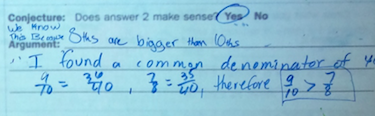 Conjecture: Does answer 2 make sense? Yes No
We know
this Because 8ths are bigger than 10ths
Argument:
I found a common denominator of
9/10 = 36/40, 7/8 = 35/40, therefore 9/10 > 7/8